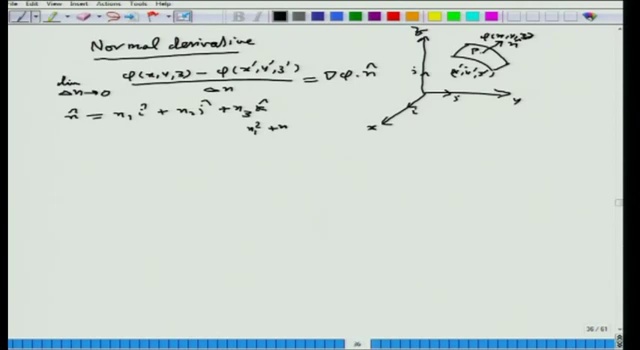 File Edit View Insert Actions Tools Help
Normal derivative
lim Δn→0 φ(x,y,z) - φ(x',y',z') / Δn = ∇φ.n̂
n̂ = n₁ î + n₂ ĵ + n₃ k̂
n₁² + n
z
φ(x,y,z)
P
n̂
(x',y',z')
j
y
i
x
36 / 61
36